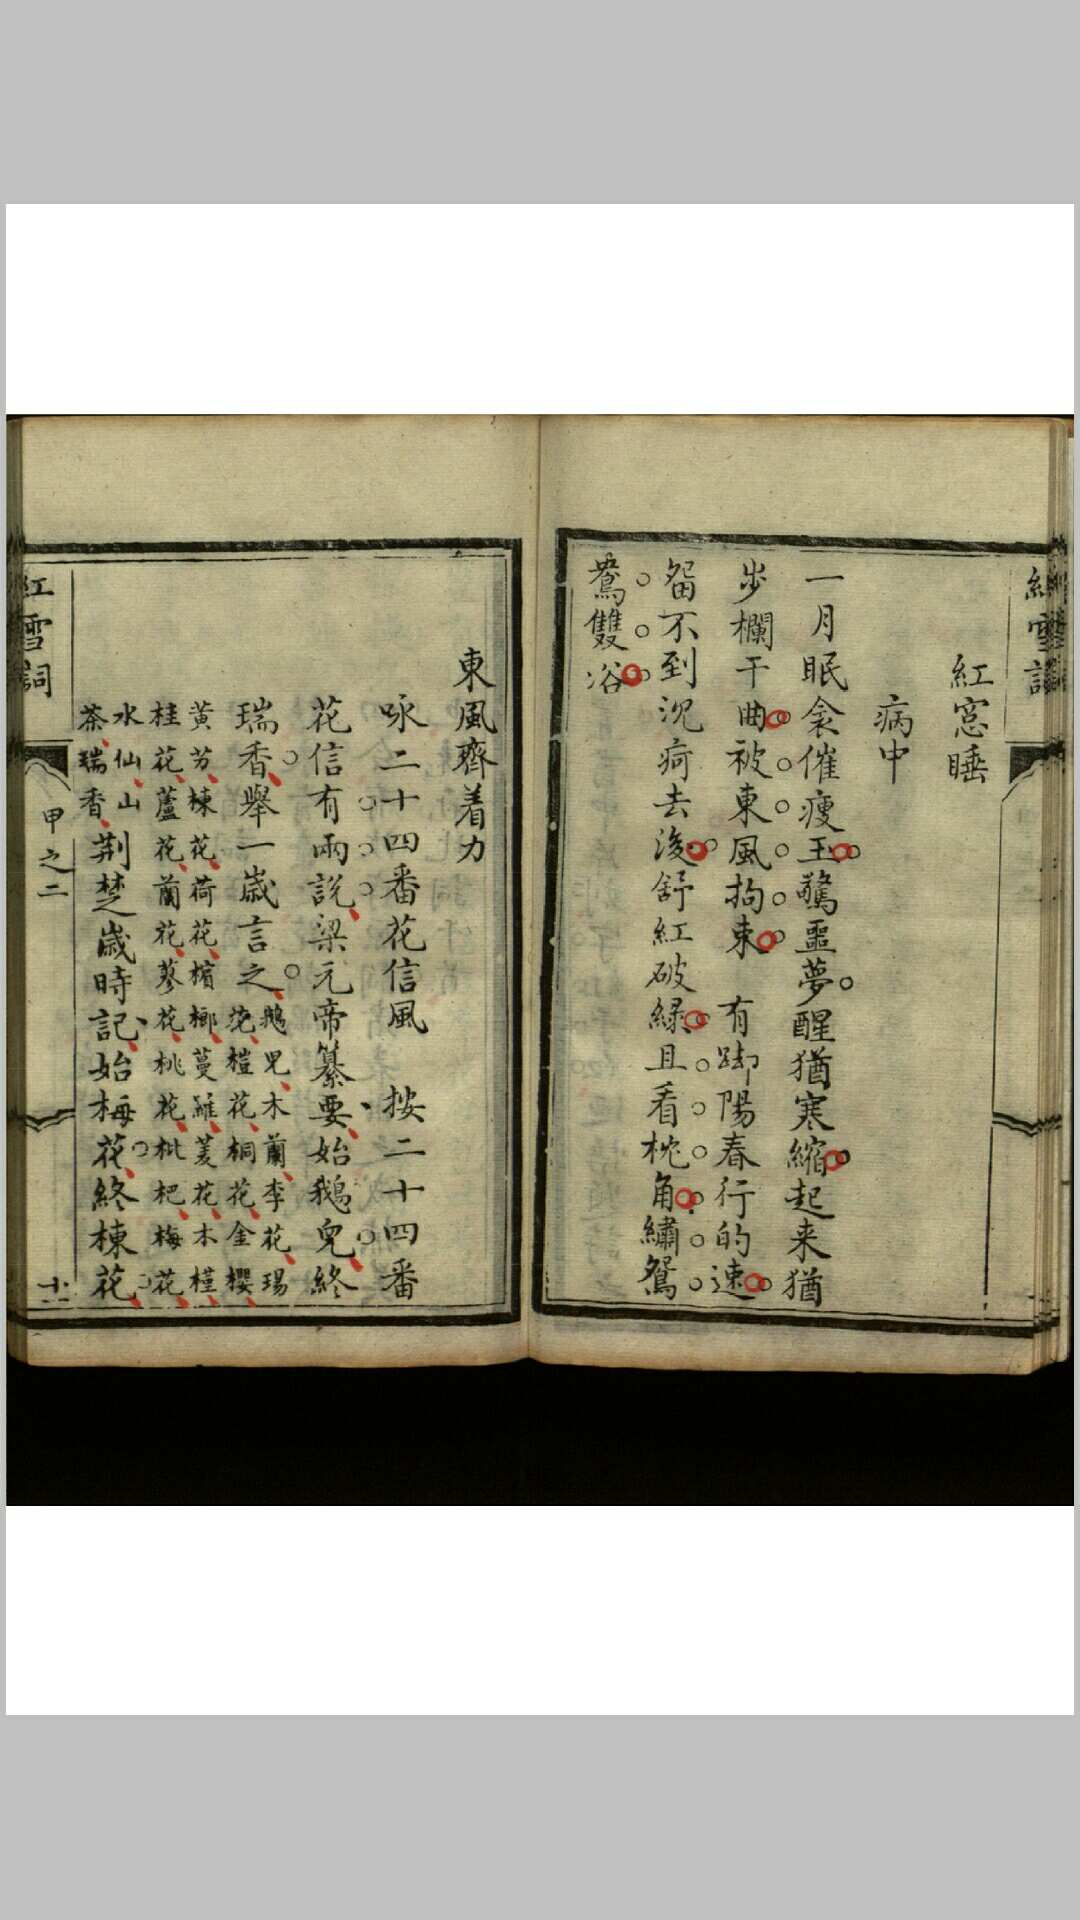 紅雪詞
紅窓睡
病中
一月眠衾催瘦玉驚噩夢醒猶寒縮起来猶
步欄干曲被東風拘束　有脚陽春行的速
畱不到沉疴去後舒紅破綠且看枕角繡鴛
鴦雙浴
東風齊着力
咏二十四番花信風　按二十四番
花信有兩說梁元帝纂要始鵝兒終
瑞香舉一歲言之鵝兒木蘭李花瑒
花榿花桐花金櫻
黃芳楝花荷花檳榔蔓蘿菱花木槿
桂花蘆花蘭花蓼花桃花枇杷梅花
水仙山
茶瑞香荆楚歲時記始梅花終楝花
紅雪詞
甲之二
十一